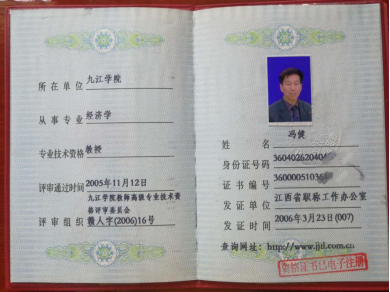 所在单位 九江学院
从事专业 经济学
专业技术资格 教授
评审通过时间 2005年11月12日
九江学院教师高级专业技术资
格评审委员会
评审组织 赣人字(2006)16号
姓名 冯健
身份证号码 360402620404
证书编号 3600005103
发证单位 江西省职称工作办公室
发证时间 2006年3月23日(007)
查询网址: http://www.jjtl.com.cn
证书已电子注册